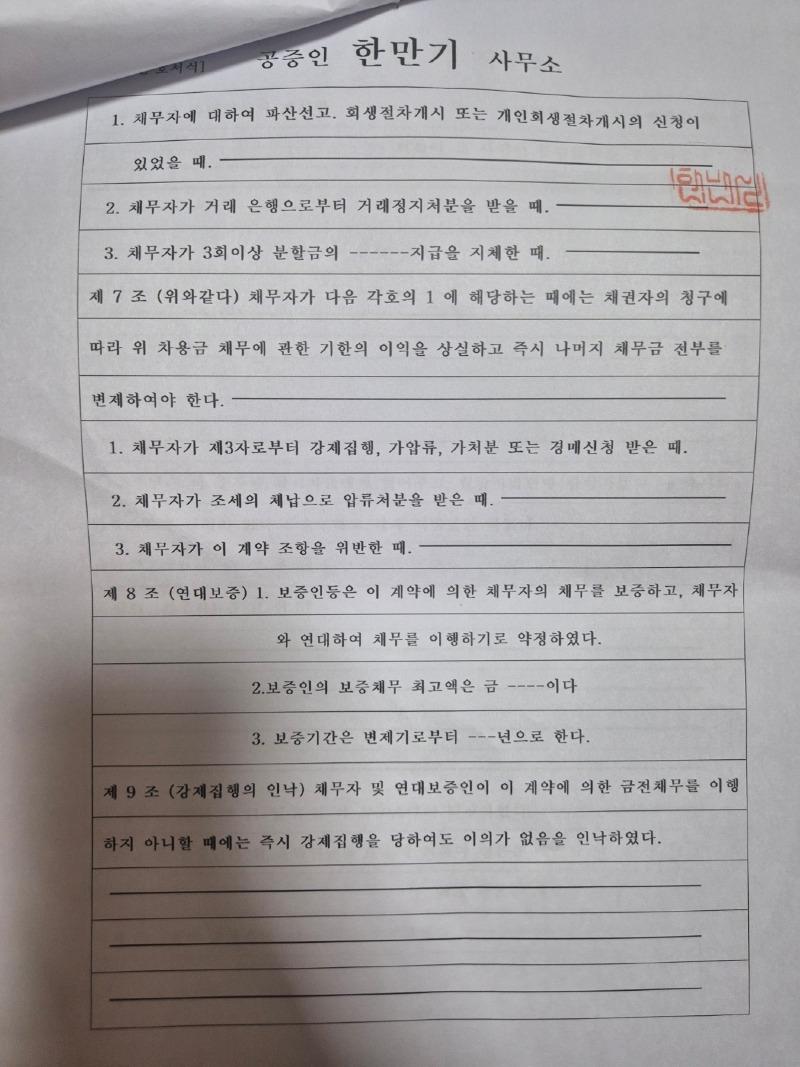 호서식]
공증인 한만기 사무소
1. 채무자에 대하여 파산선고. 회생절차개시 또는 개인회생절차개시의 신청이
있었을 때.
2. 채무자가 거래 은행으로부터 거래정지처분을 받을 때.
3. 채무자가 3회이상 분할금의 ------지급을 지체한 때.
제 7 조 (위와같다) 채무자가 다음 각호의 1 에 해당하는 때에는 채권자의 청구에
따라 위 차용금 채무에 관한 기한의 이익을 상실하고 즉시 나머지 채무금 전부를
변제하여야 한다.
1. 채무자가 제3자로부터 강제집행, 가압류, 가처분 또는 경매신청 받은 때.
2. 채무자가 조세의 체납으로 압류처분을 받은 때.
3. 채무자가 이 계약 조항을 위반한 때.
제 8 조 (연대보증) 1. 보증인등은 이 계약에 의한 채무자의 채무를 보증하고, 채무자
와 연대하여 채무를 이행하기로 약정하였다.
2.보증인의 보증채무 최고액은 금 ----이다
3. 보증기간은 변제기로부터 ---년으로 한다.
제 9 조 (강제집행의 인낙) 채무자 및 연대보증인이 이 계약에 의한 금전채무를 이행
하지 아니할 때에는 즉시 강제집행을 당하여도 이의가 없음을 인낙하였다.